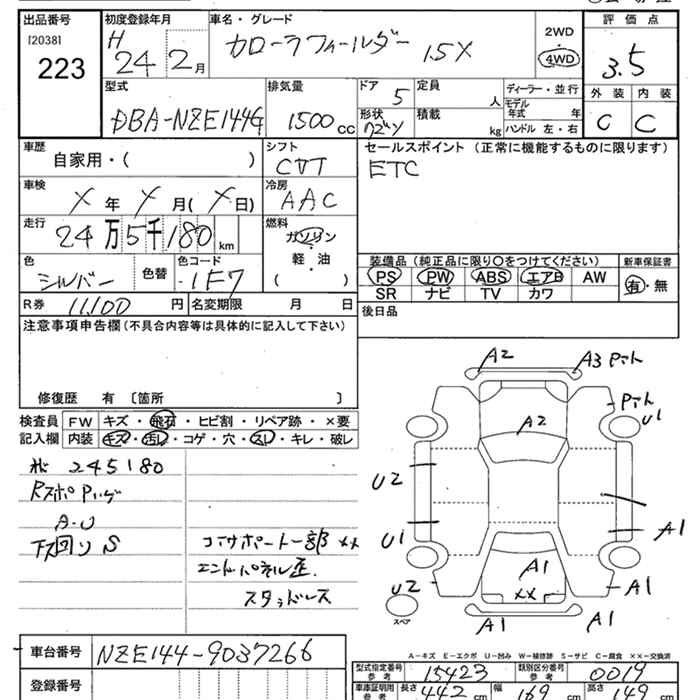 出品番号
[2038]
223
初度登録年月
H 24 2月
車名・グレード
カローラフィールダー 1.5X
2WD
4WD
評価点
3.5
外装 内装
C C
型式
DBA-NZE144G
排気量
1500cc
ドア 5
形状 ワゴン
定員 人
積載 kg
ディーラー・並行
モデル年式 年
ハンドル 左・右
車歴
自家用・( )
シフト
CVT
セールスポイント (正常に機能するものに限ります)
ETC
車検
年 月( 日)
冷房
AAC
走行
24万5千180km
燃料
ガソリン
軽・油
( )
色
シルバー
色替
色コード
1F7
装備品 (純正品に限り○をつけてください)
新車保証書
PS PW ABS エアB AW
SR ナビ TV カワ
有・無
R券 11,100円
名変期限 月 日
後日品
注意事項申告欄 (不具合内容等は具体的に記入して下さい)
修復歴 有 〔箇所 〕
検査員記入欄
FW キズ・飛石・ヒビ割・リペア跡・×要
内装 キズ・汚レ・コゲ・穴・スレ・キレ・破レ
245180
A・U
下回りS
コアサポート一部××
エンドパネル歪.
スタッドレス
A2
A3
A2
U1
U2
U1
A1
A1
××
U2
A1
A1
A1
スペア
A-キズ E-エクボ U-凹み W-補修跡 S-サビ C-腐食 ××-交換済
車台番号
NZE144-9037266
登録番号
型式指定番号
参考
15423
類別区分番号
参考
0019
車庫証明用
参考
長さ 442cm
幅 169cm
高さ 149cm